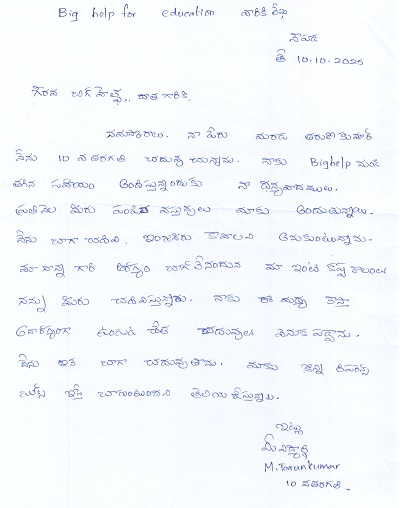 Big help for education వారికి లేఖ
నౌపడ
తే 10.10.2025
గౌరవ బిగ్ హెల్ప్, దాత గారికి.
నమస్కారాలు. నా పేరు తరుణ్ కుమార్
నేను 10 వ తరగతి చదువు చున్నాను. నాకు Bighelp నుండి
తగిన సహాయం అందిస్తున్నందుకు నా ధన్యవాదములు.
ప్రతి నెల మీరు పంపిన వస్తువులు మాకు అందుతున్నాయి.
నేను బాగా చదివి, కావాలని అనుకుంటున్నాను.
మా నాన్న గారి ఆరోగ్యం మా ఇంటి
నన్ను మీరు చదివిస్తున్నారు. నాకు ఈ మధ్య కాస్త
ఉండుట చేత చదువులో వెనుక పడ్డాను.
నేను ఇక బాగా చదువుతాను. మాకు కొన్ని
బుక్స్ ఇస్తే బాగుంటుందని తెలియ జేస్తున్నాను.
ఇట్లు
మీ విద్యార్థి
M. Tarunkumar
10 వ తరగతి.